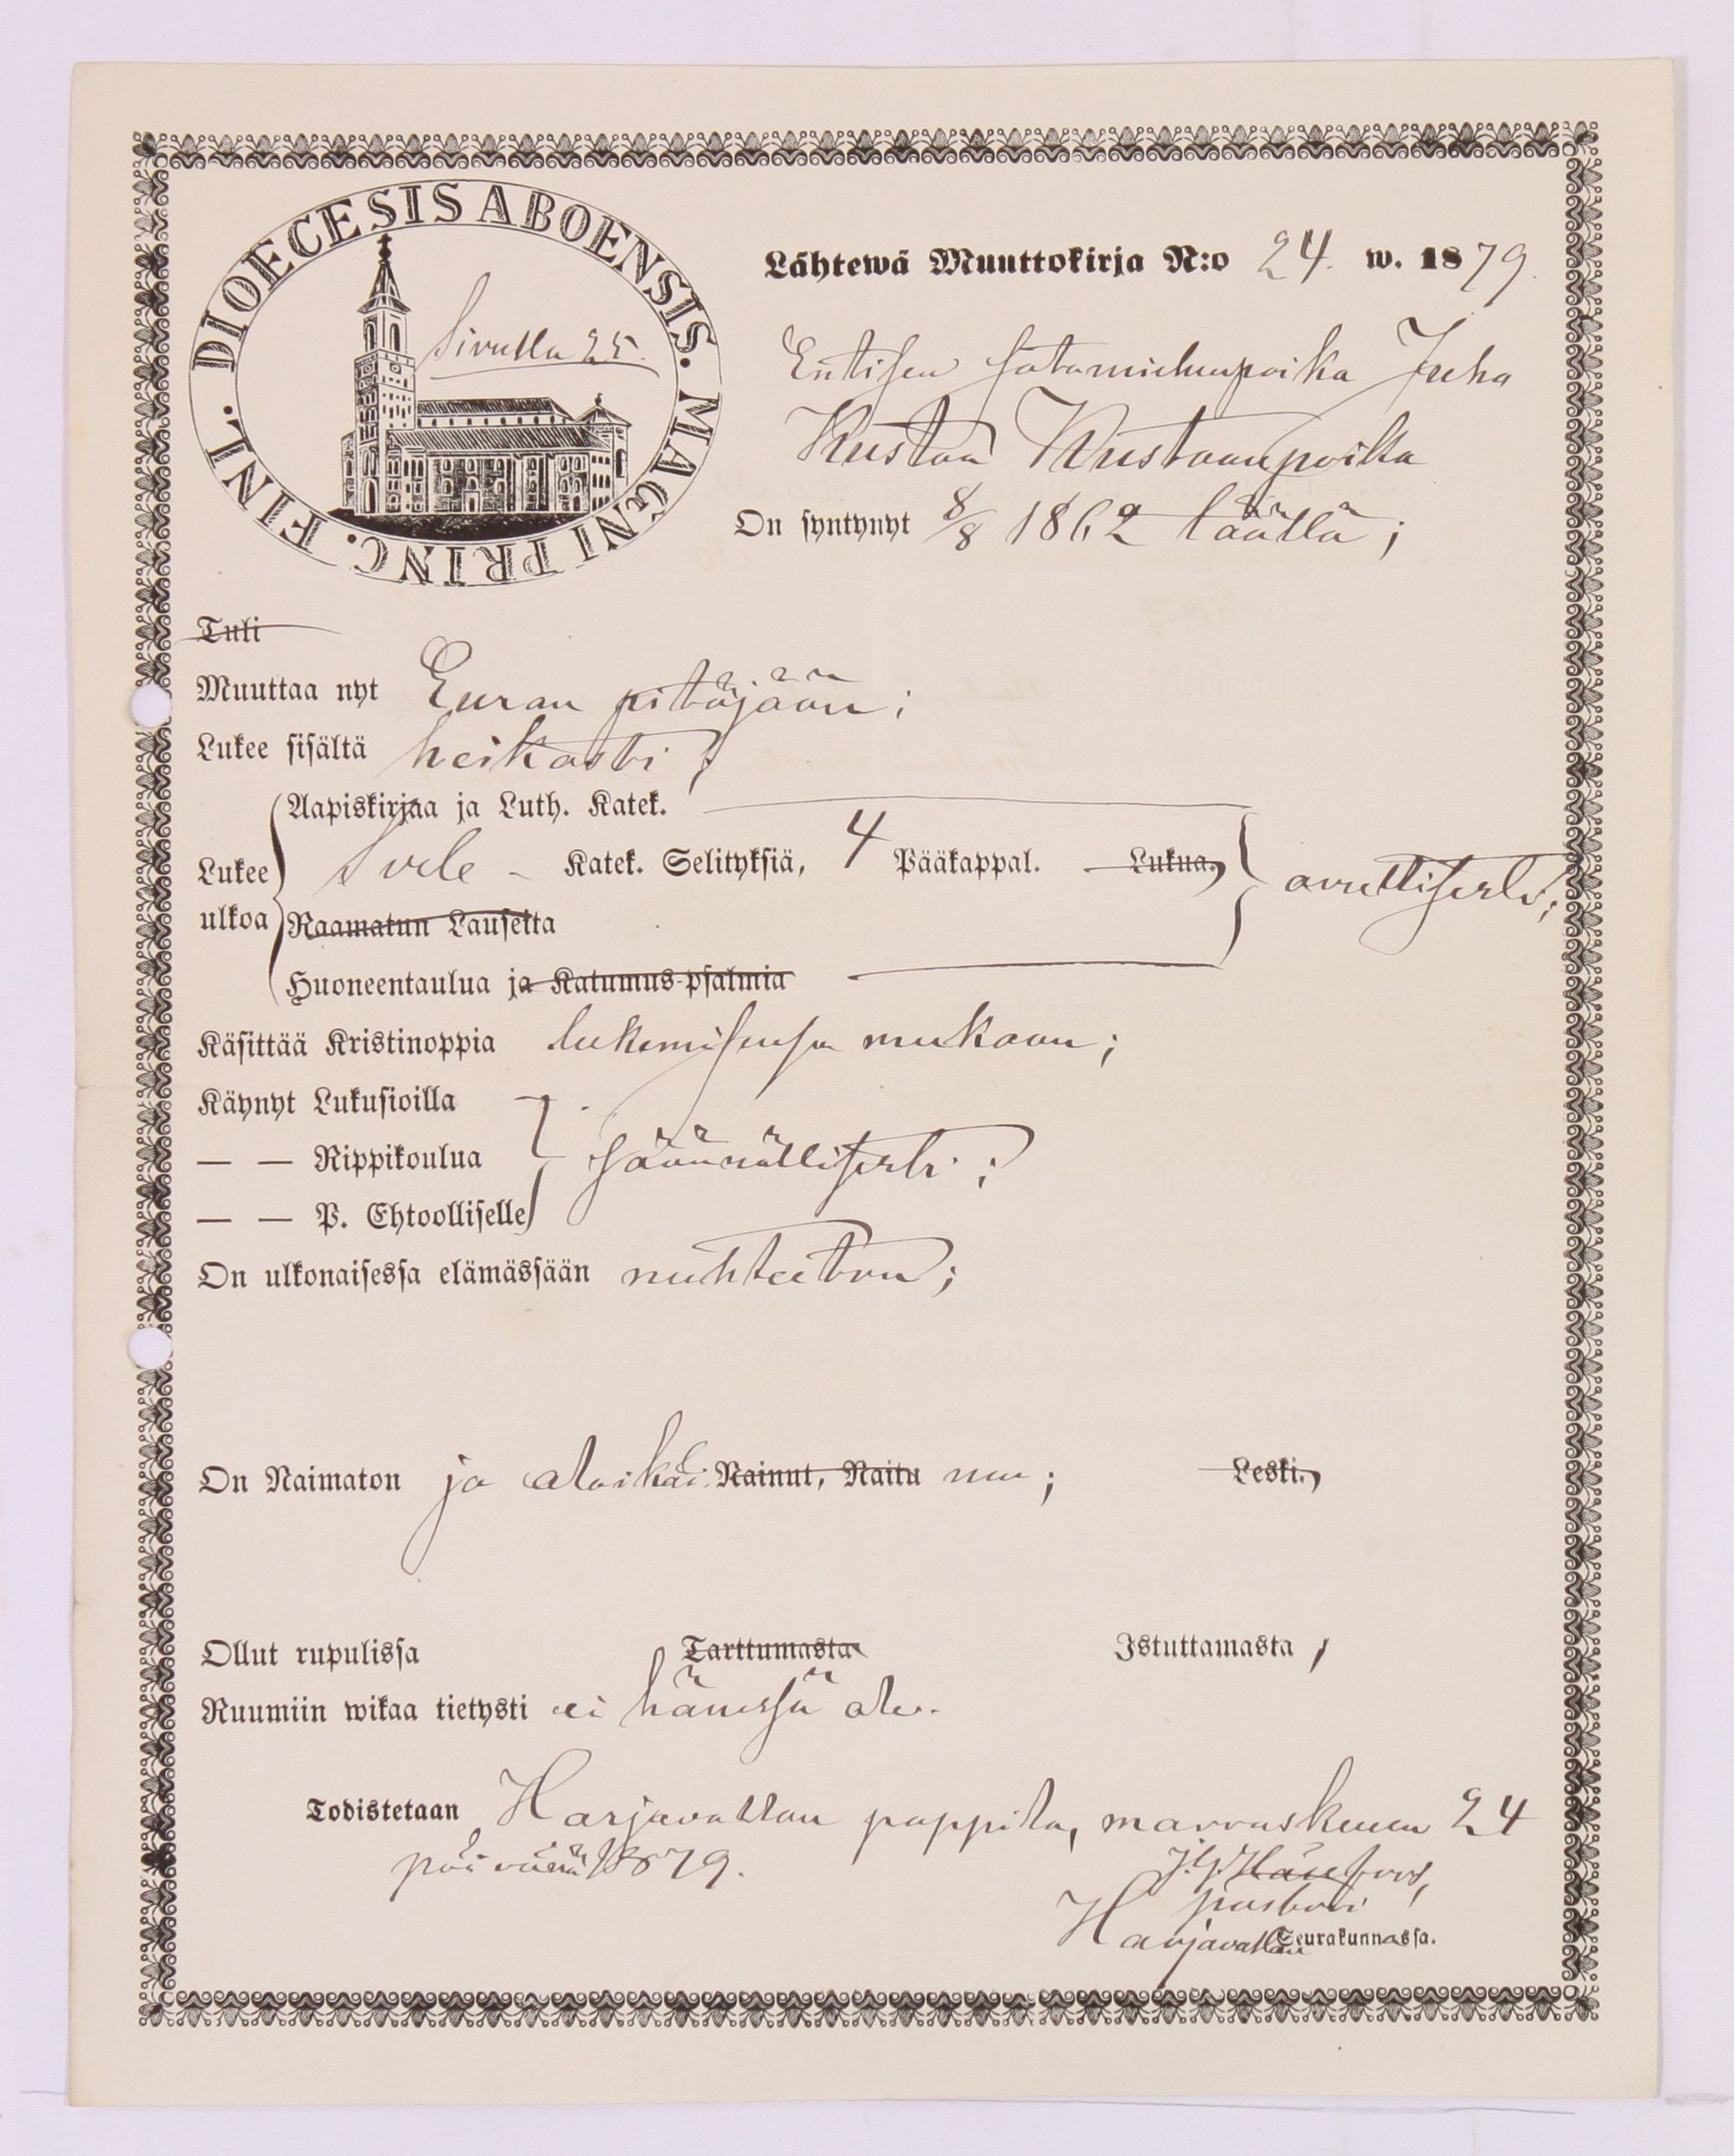 DIOECESIS ABOENSIS. MAGNI PRINC. FINL.
Sivulla 25.
Lähtewä Muuttokirja N:o 24. w. 1879.
Entisen sotamiehenpoika Juha
Kustaa Kustaanpoika
On syntynyt 8/8 1862 täällä;
Tuli
Muuttaa nyt Euran pitäjään;
Lukee sisältä heikosti;
Aapiskirjaa ja Luth. Katek.
Lukee Svele - Katek. Selityksiä, 4 Pääkappal. Lukua, avullisesti;
ulkoa Raamatun Lauseita
Huoneentaulua ja Katumus-psalmia
Käsittää Kristinoppia lukemisensa mukaan;
Käynyt Lukusioilla
— — Rippikoulua säännöllisesti;
— — P. Ehtoolliselle
On ulkonaisessa elämässään nuhteeton;
On Naimaton ja alaikäi Nainut, Naitu nen; Leski,
Ollut rupulissa Tarttumasta Istuttamasta,
Ruumiin wikaa tietysti ei hänessä ole.
Todistetaan Harjavallan pappila, marraskuun 24
päivänä 1879.
J. G.
pastori
Harjavallan Seurakunnassa.